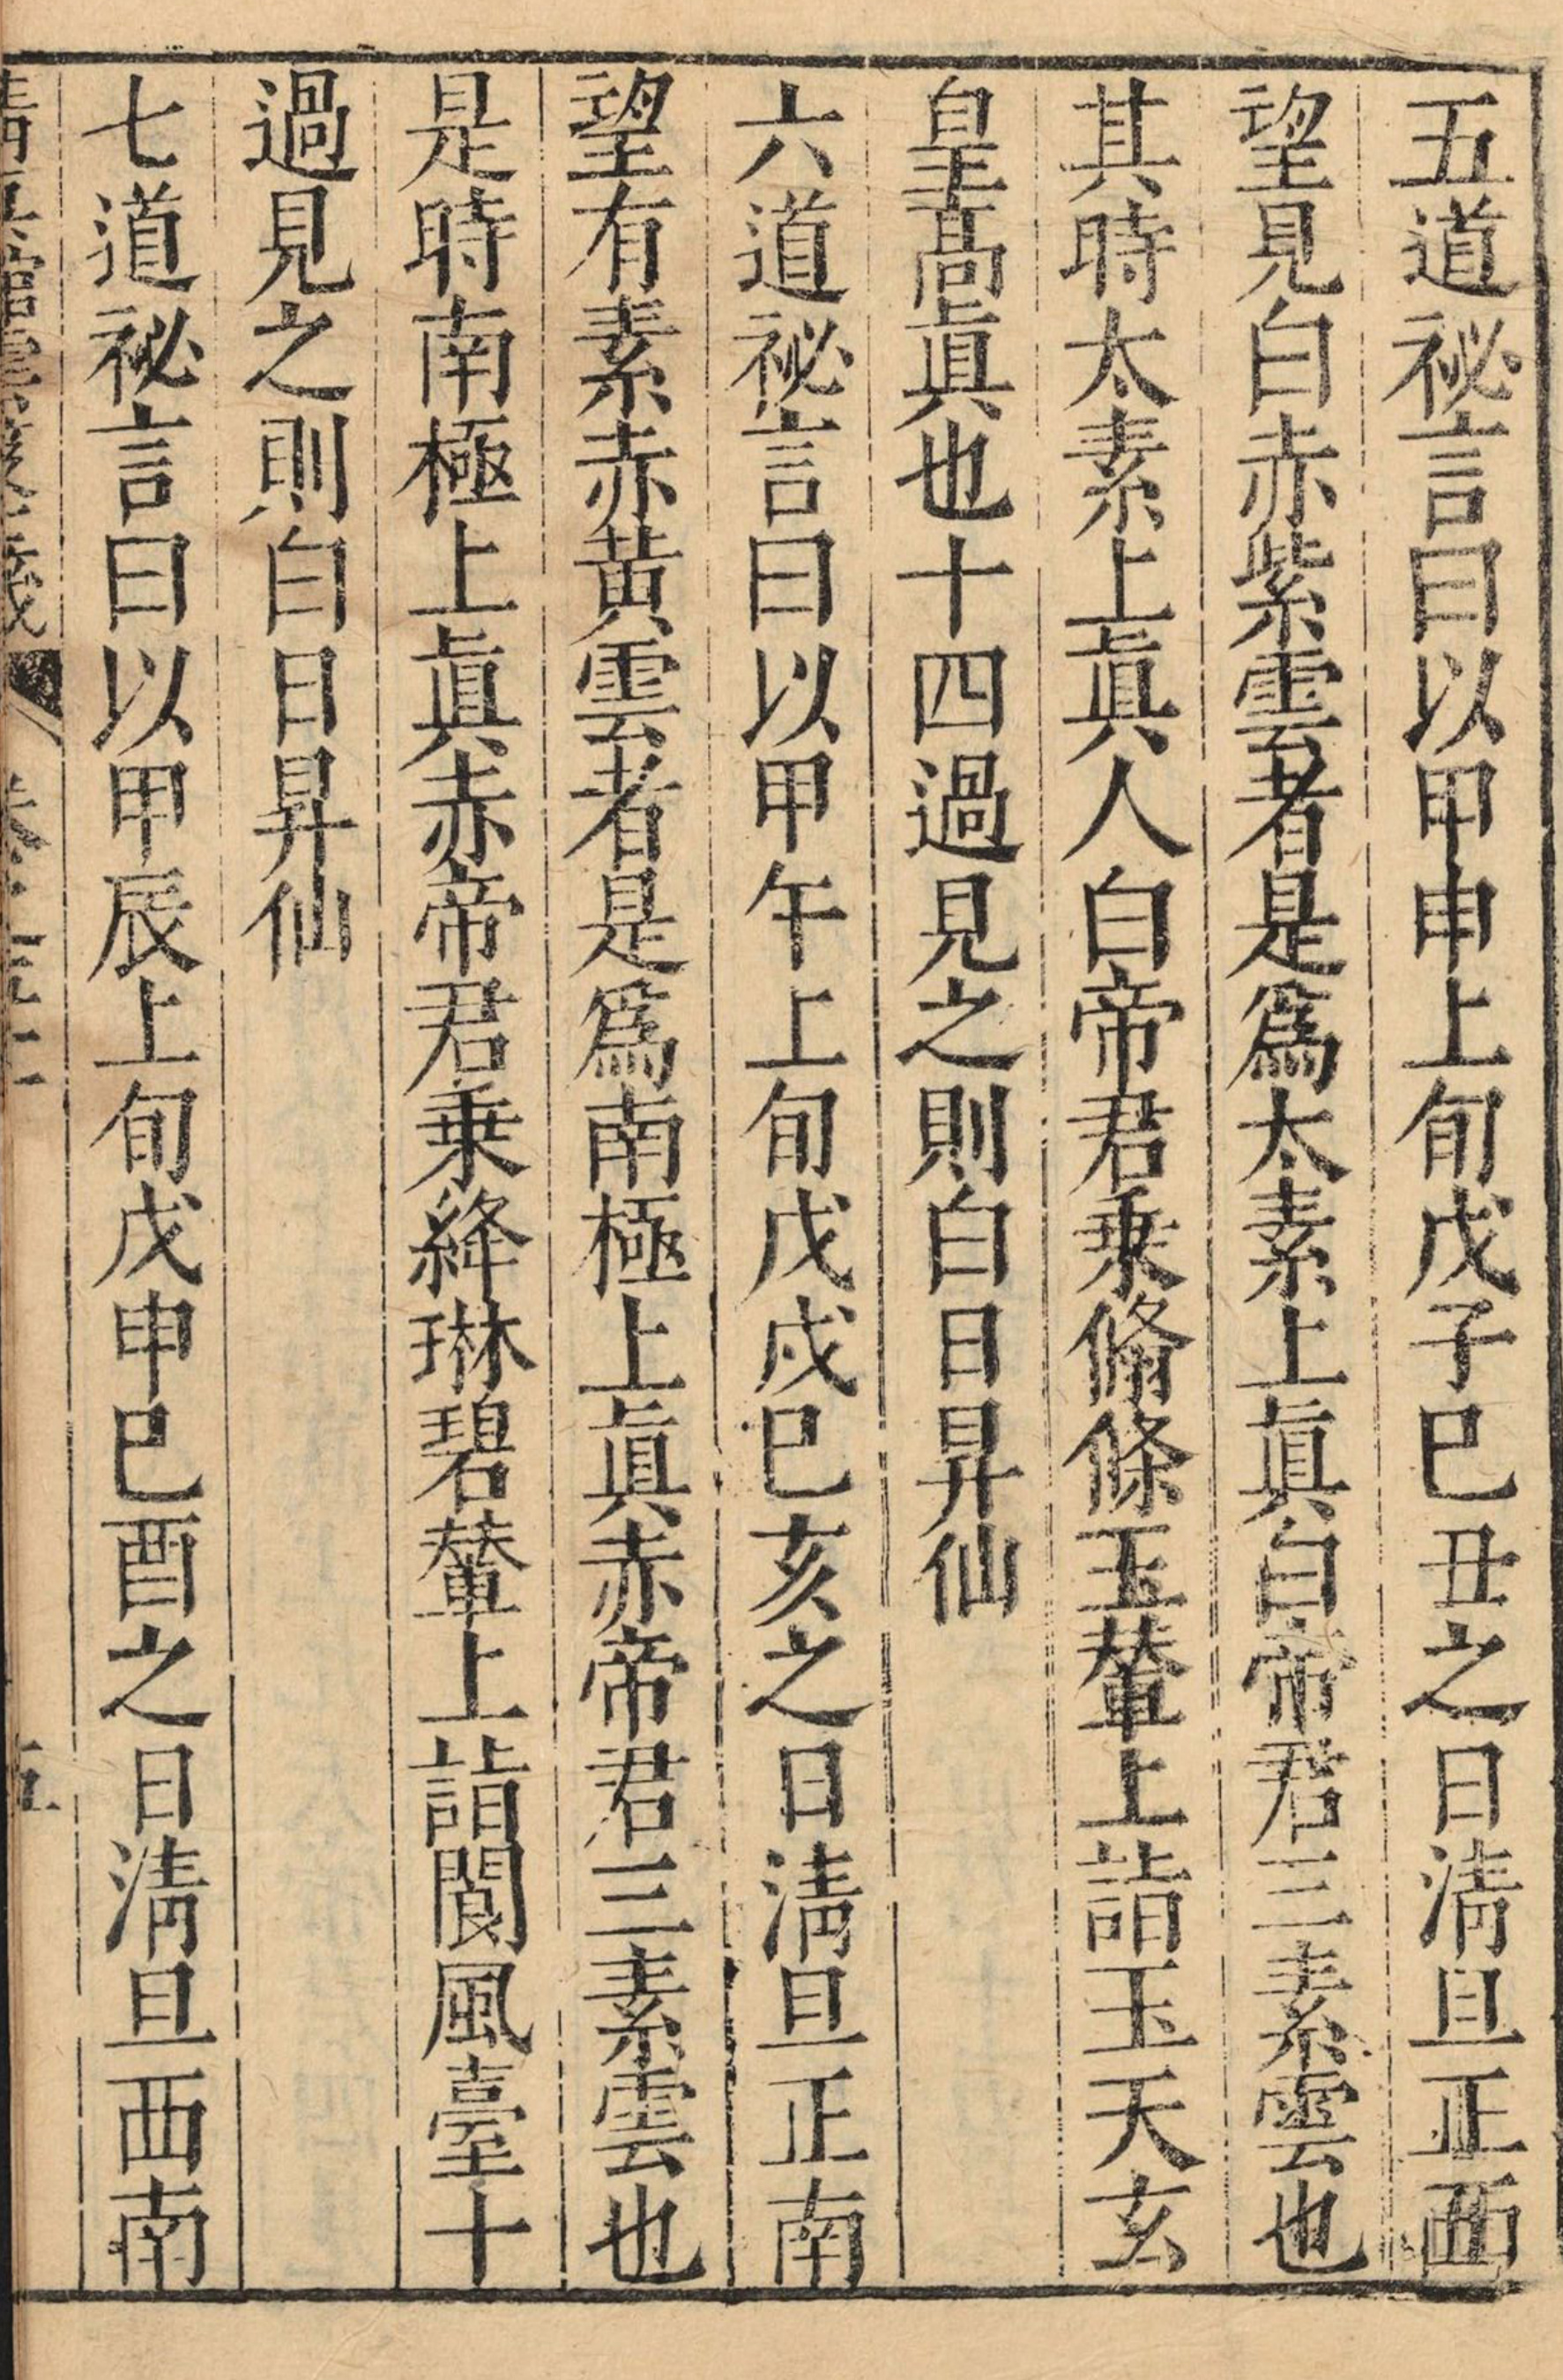 五道祕言曰以甲申上旬戊子巳丑之日淸旦正西
望見白赤紫雲者是爲太素上眞白帝君三素雲也
其時太素上眞人白帝君乗翛條玉輦上詣玉天玄
皇高眞也十四過見之則白日昇仙
六道祕言曰以甲午上旬戊戌巳亥之日淸旦正南
望有素赤黄雲者是爲南極上眞赤帝君三素雲也
是時南極上眞赤帝君乗絳琳碧輦上詣閬風臺十
過見之則白日昇仙
七道祕言曰以甲辰上旬戊申巳酉之日淸旦西南
五